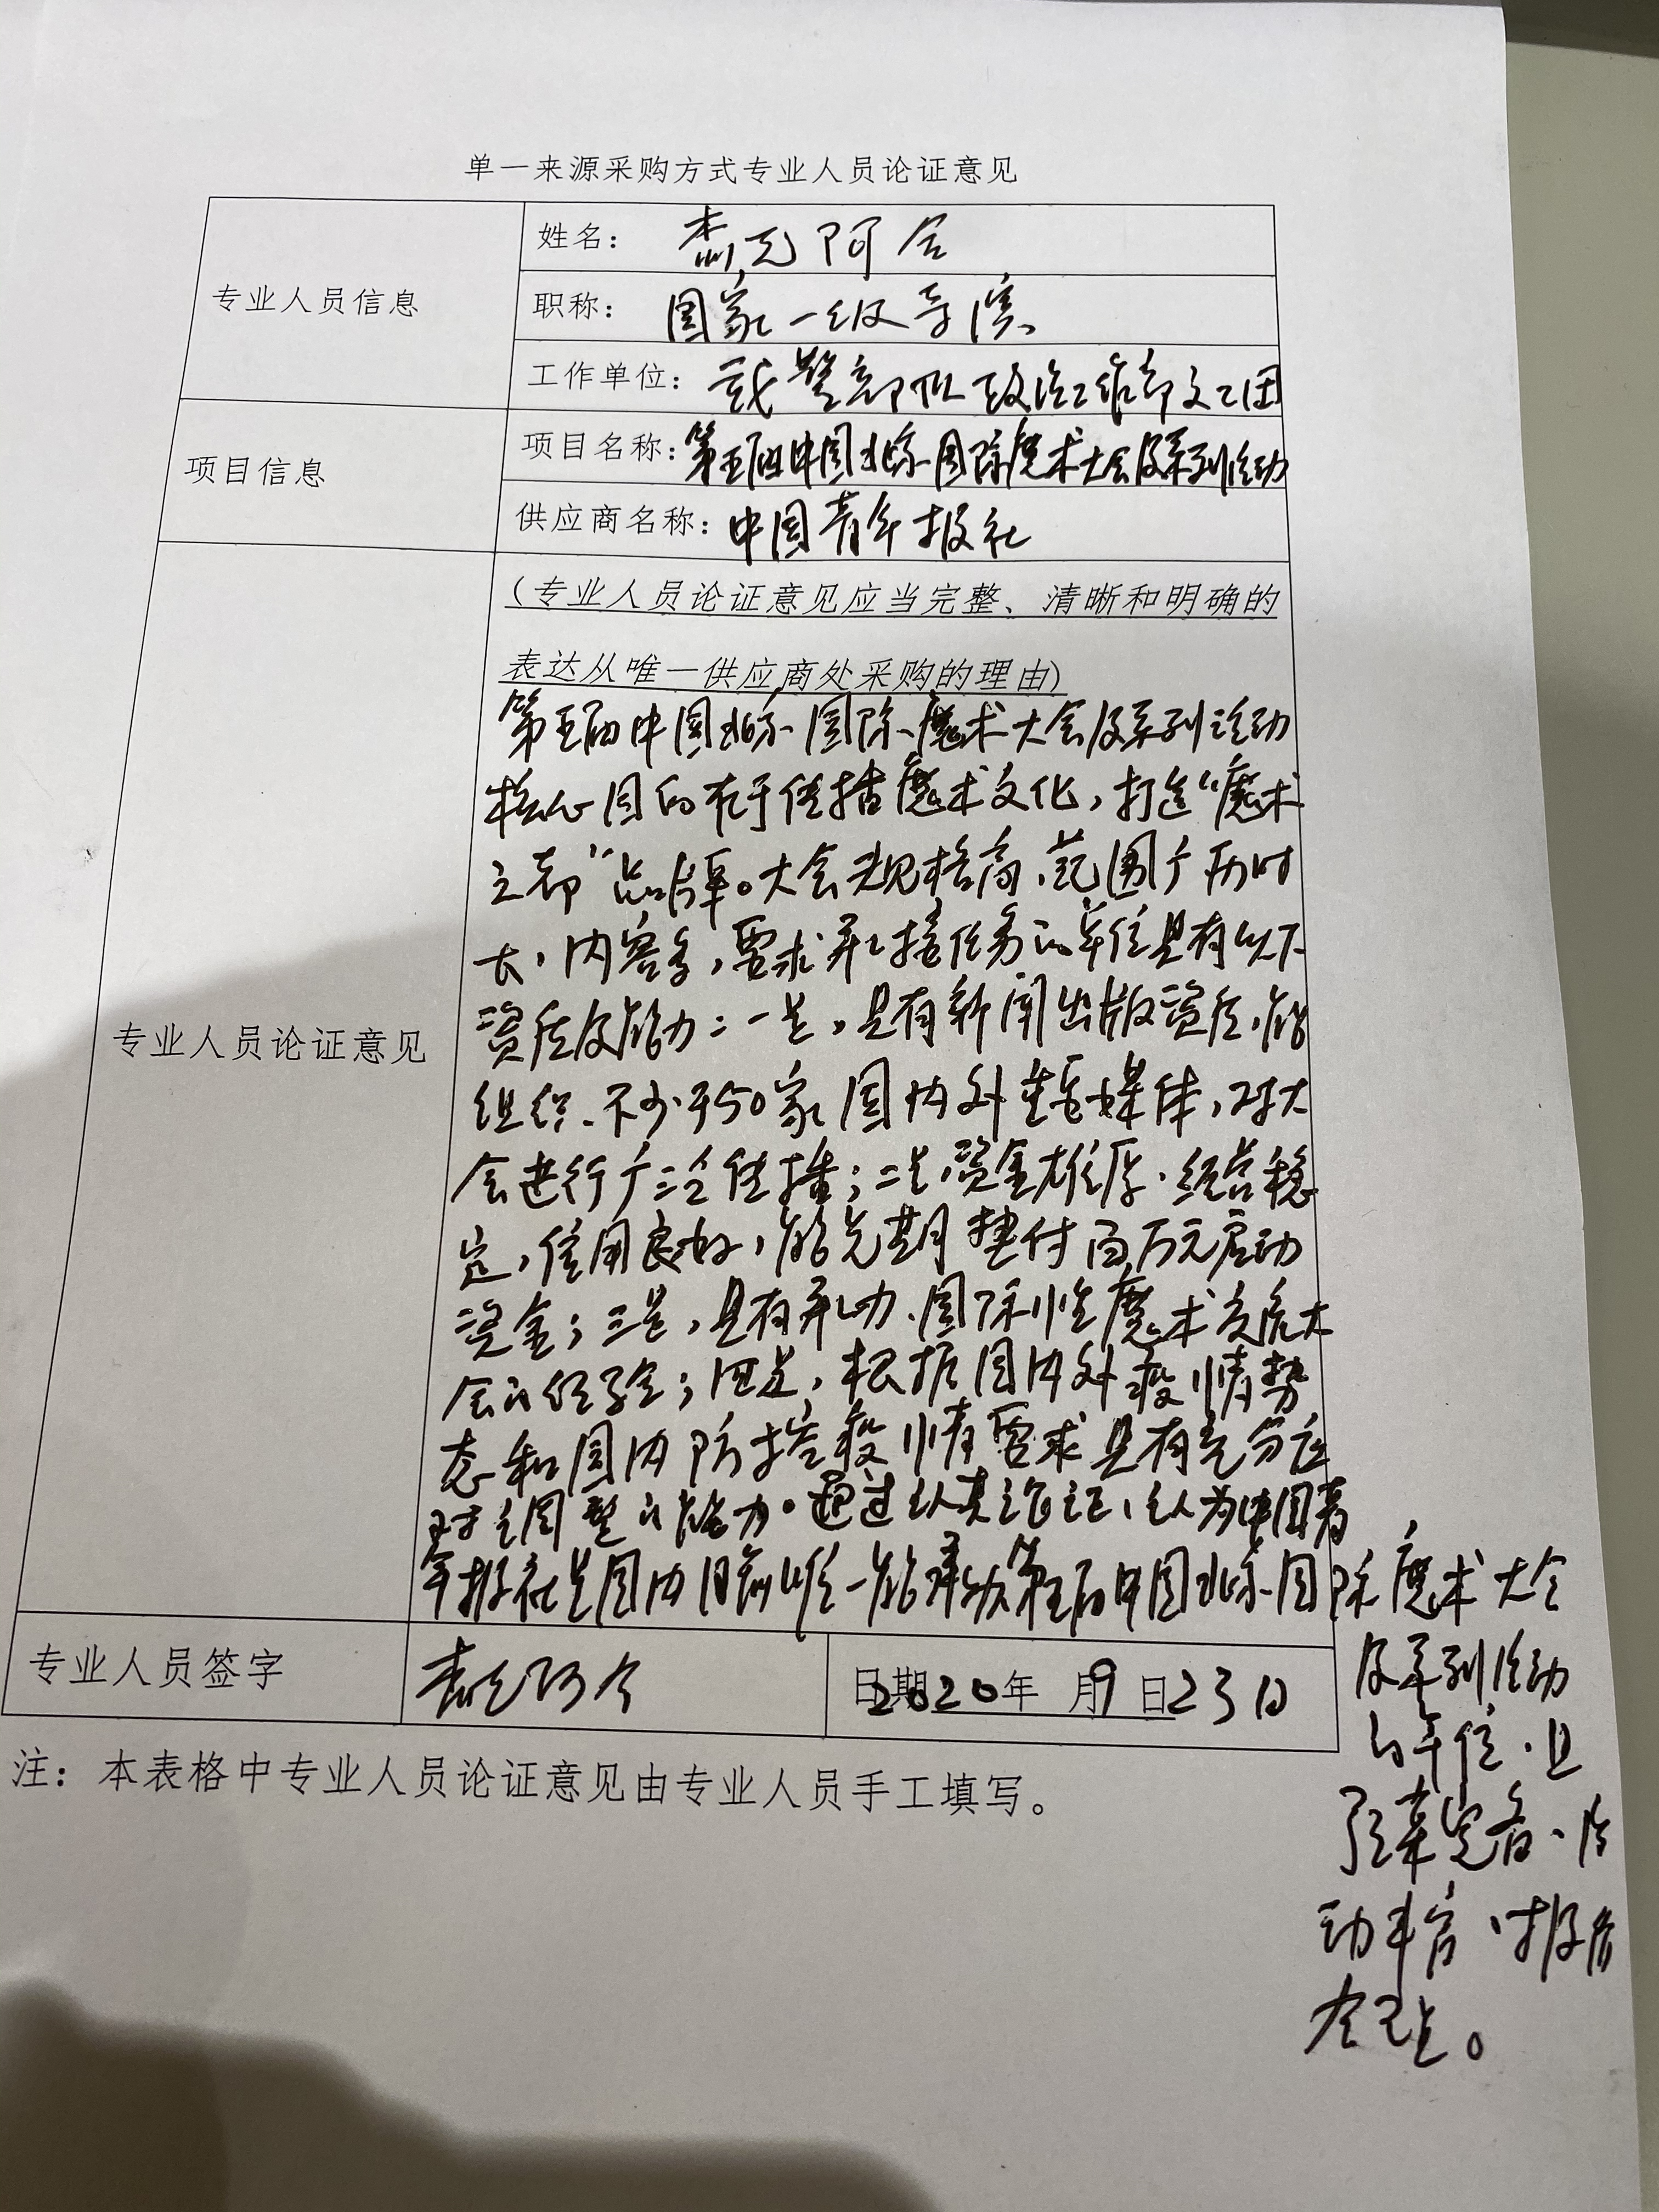 单一来源采购方式专业人员论证意见
专业人员信息
姓名：
职称： 国家一级导演
工作单位： 武警部队政治工作部文工团
项目信息
项目名称：第五届中国北京国际魔术大会及系列活动
供应商名称：中国青年报社
专业人员论证意见
（专业人员论证意见应当完整、清晰和明确的
表达从唯一供应商处采购的理由）
第五届中国北京国际魔术大会及系列活动
核心目的在于传播魔术文化，打造“魔术
之都”品牌。大会规格高、范围广、历时
长，内容多，要求承接任务的单位具有以下
资质及能力：一是，具有新闻出版资质，能
组织不少于50家国内外重要媒体，对大
会进行广泛传播；二是，资金雄厚、经营稳
定，信用良好，能先期垫付百万元启动
资金；三是，具有承办国际性魔术交流大
会的经验；四是，根据国内外疫情势
态和国内防控疫情要求具有充分应
对与调整的能力。通过认真论证，认为中国青
年报社是国内目前唯一能承办第五届中国北京国际魔术大会
及系列活动
的单位，且
方案完备、活
动丰富，报价
合理。
专业人员签字
日期2020年 月9 日23日
注：本表格中专业人员论证意见由专业人员手工填写。